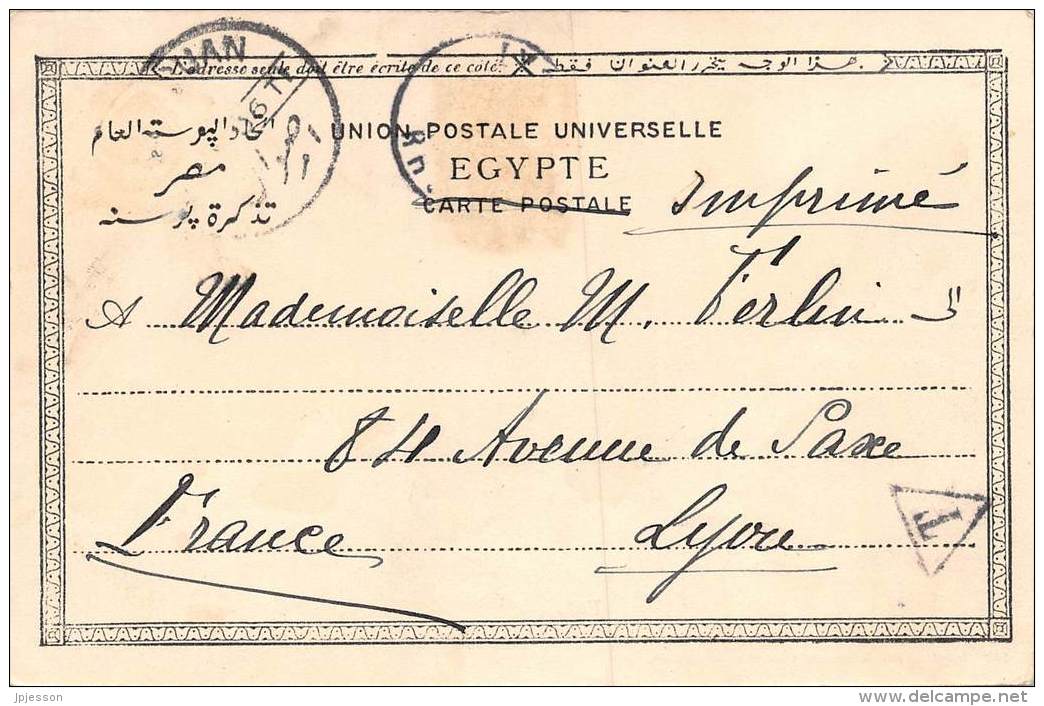 L'adresse seule doit être écrite de ce côté. هذا الوجه يتحرر العنوان فقط.
UAN
LY
اتحاد البوسته العام
UNION POSTALE UNIVERSELLE
مصر
EGYPTE
تذكرة بوسته
CARTE POSTALE
Imprimé
A Mademoiselle M. Ferlin
84 Avenue de Saxe
France Lyon
T
jpjesson
www.delcampe.net